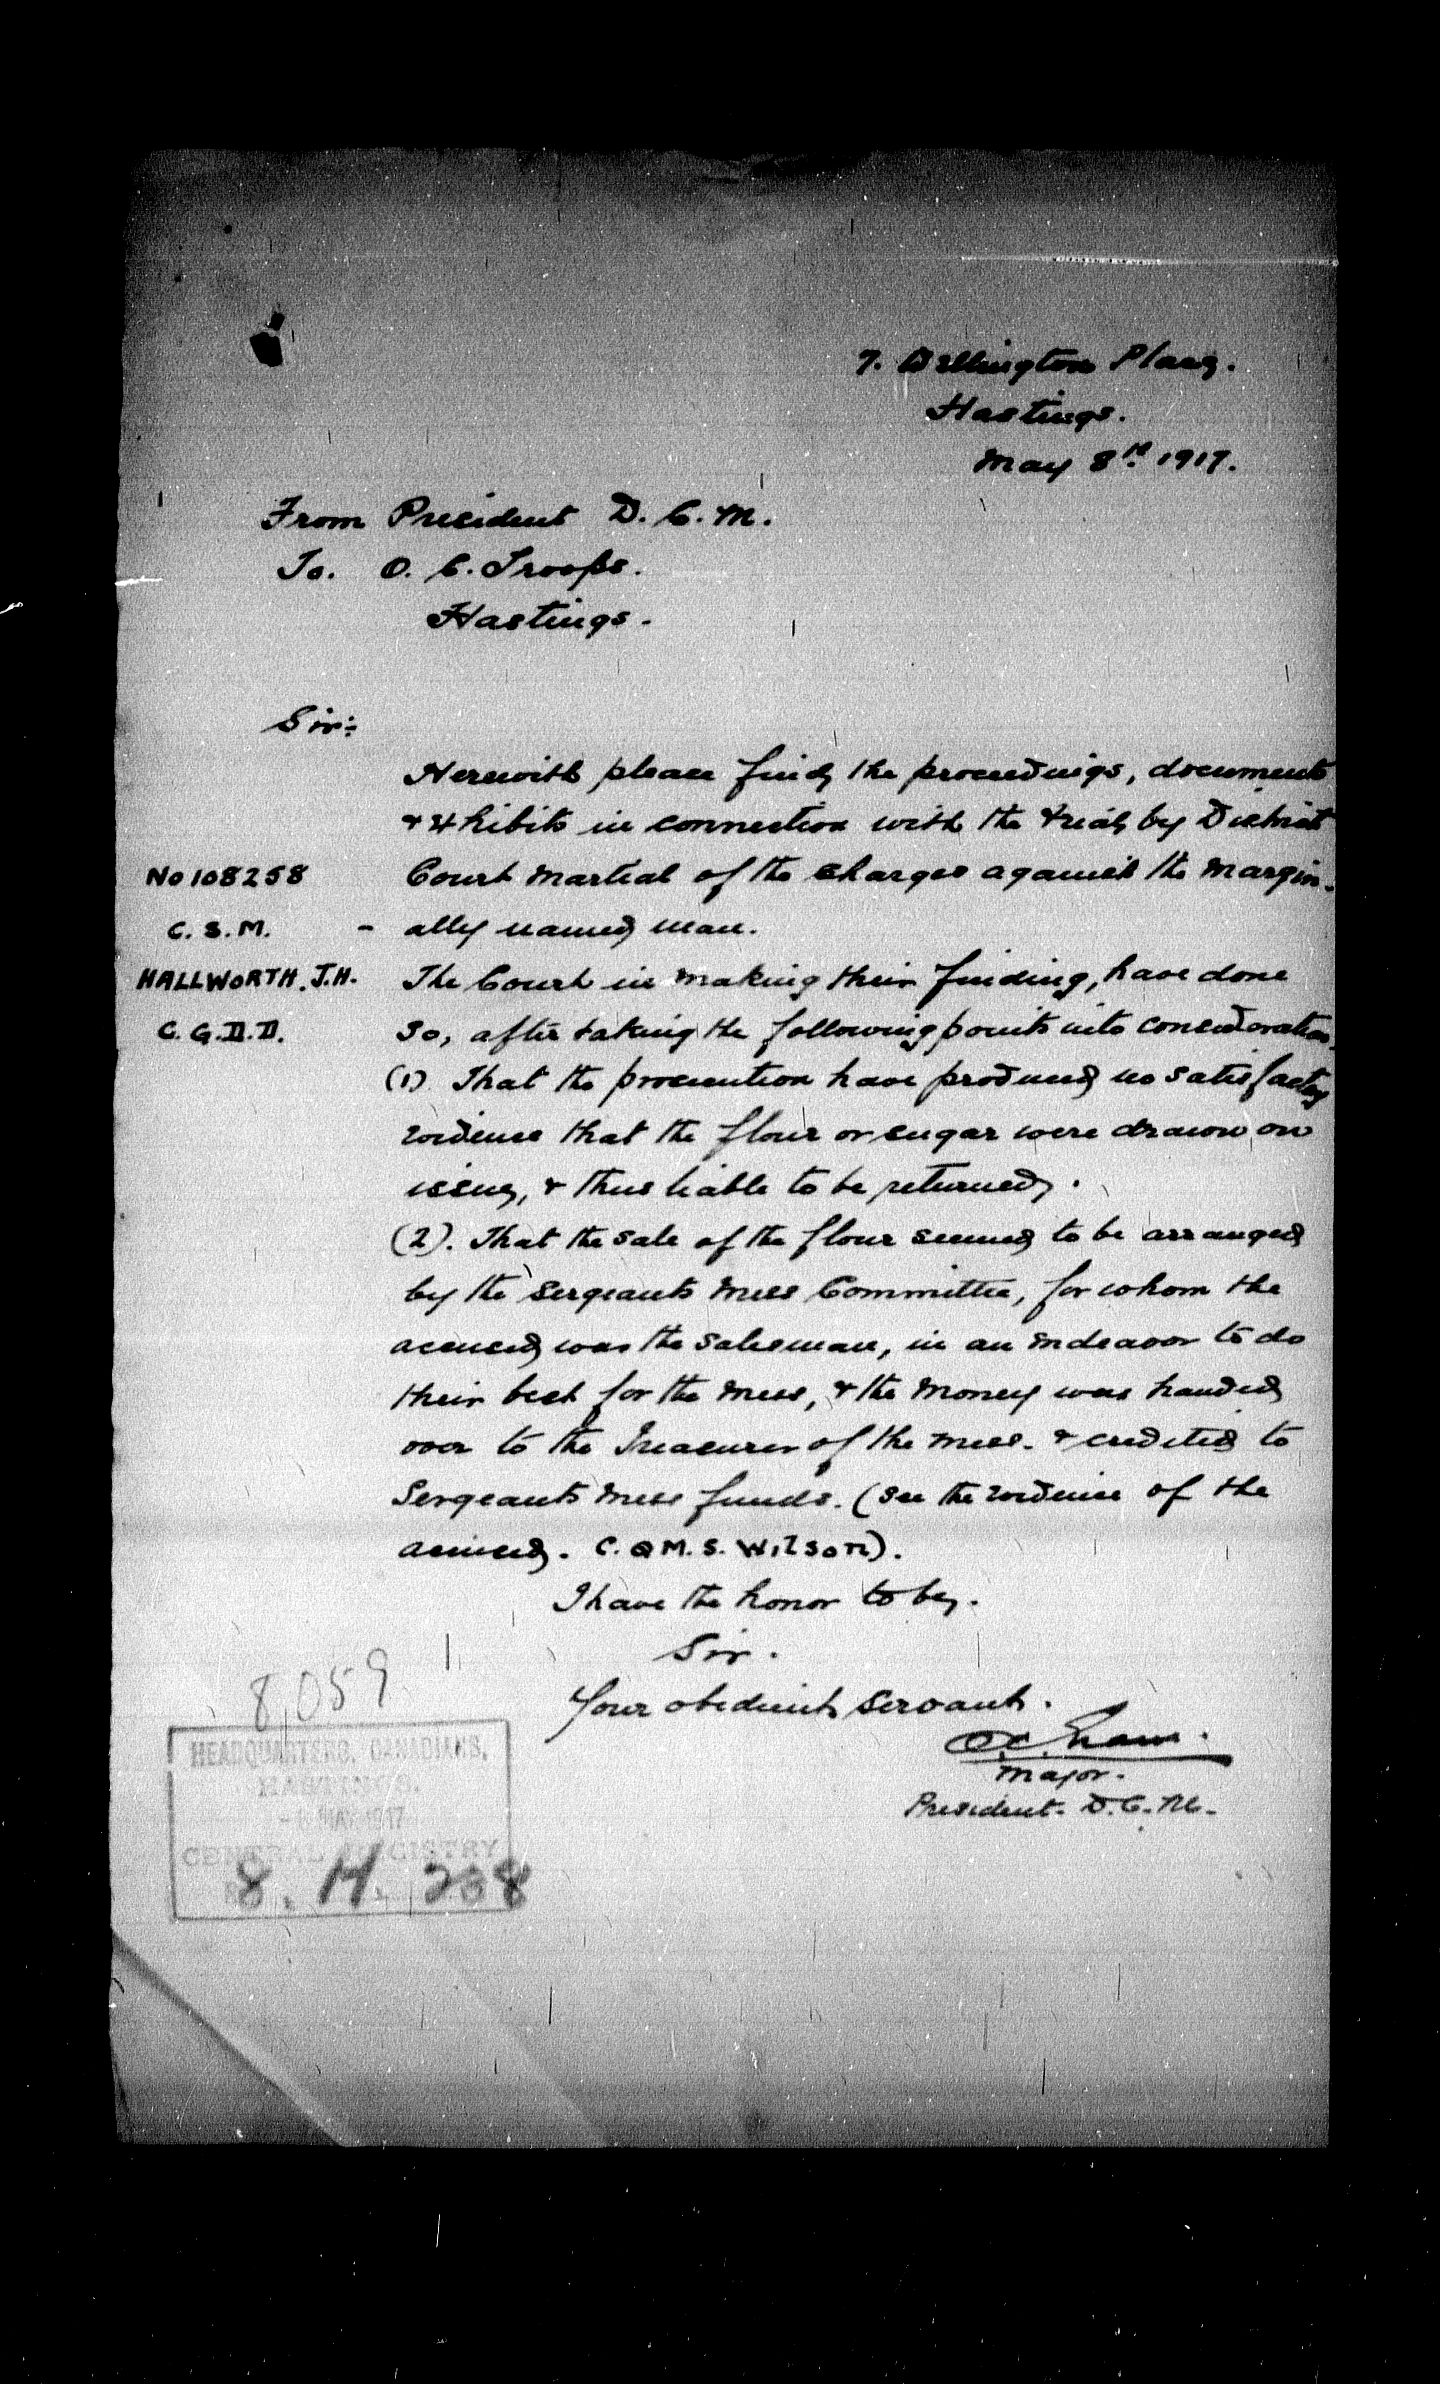 7. Wellington Place.
Hastings.
May 8th 1917.
From President D. C. M.
To. O. C. Troops.
Hastings.
Sir:
Herewith please find the proceedings, documents
& exhibits in connection with the trial by District
No 108258 Court Martial of the charges against the margin-
C. S. M. - ally named man.
HALLWORTH. J.H. The Court in making their finding, have done
C. G. D. D. so, after taking the following points into consideration.
(1) That the prosecution have produced no satisfactory
evidence that the flour or sugar were drawn on
issue, & thus liable to be returned.
(2). That the sale of the flour seemed to be arranged
by the Sergeants Mess Committee, for whom the
accused was the salesman, in an endeavor to do
their best for the Mess, & the money was handed
over to the Treasurer of the Mess. & credited to
Sergeants Mess funds. (see the evidence of the
accused. C. Q M. S. Wilson).
I have the honor to be.
Sir.
Your obedient servant.
Major.
President. D. C. M.
8059
HEADQUARTERS, CANADIANS,
HASTINGS.
MAY 1917
CENTRAL REGISTRY
8. H. 238